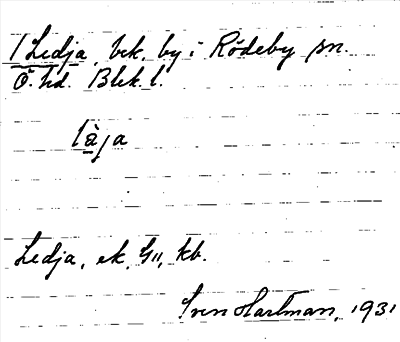 1 Ledja, bek. by i Rödeby sn.
Ö. hd. Blek. l.
làja
Ledja, ek. G11, kb.
Sven Hartman, 1931